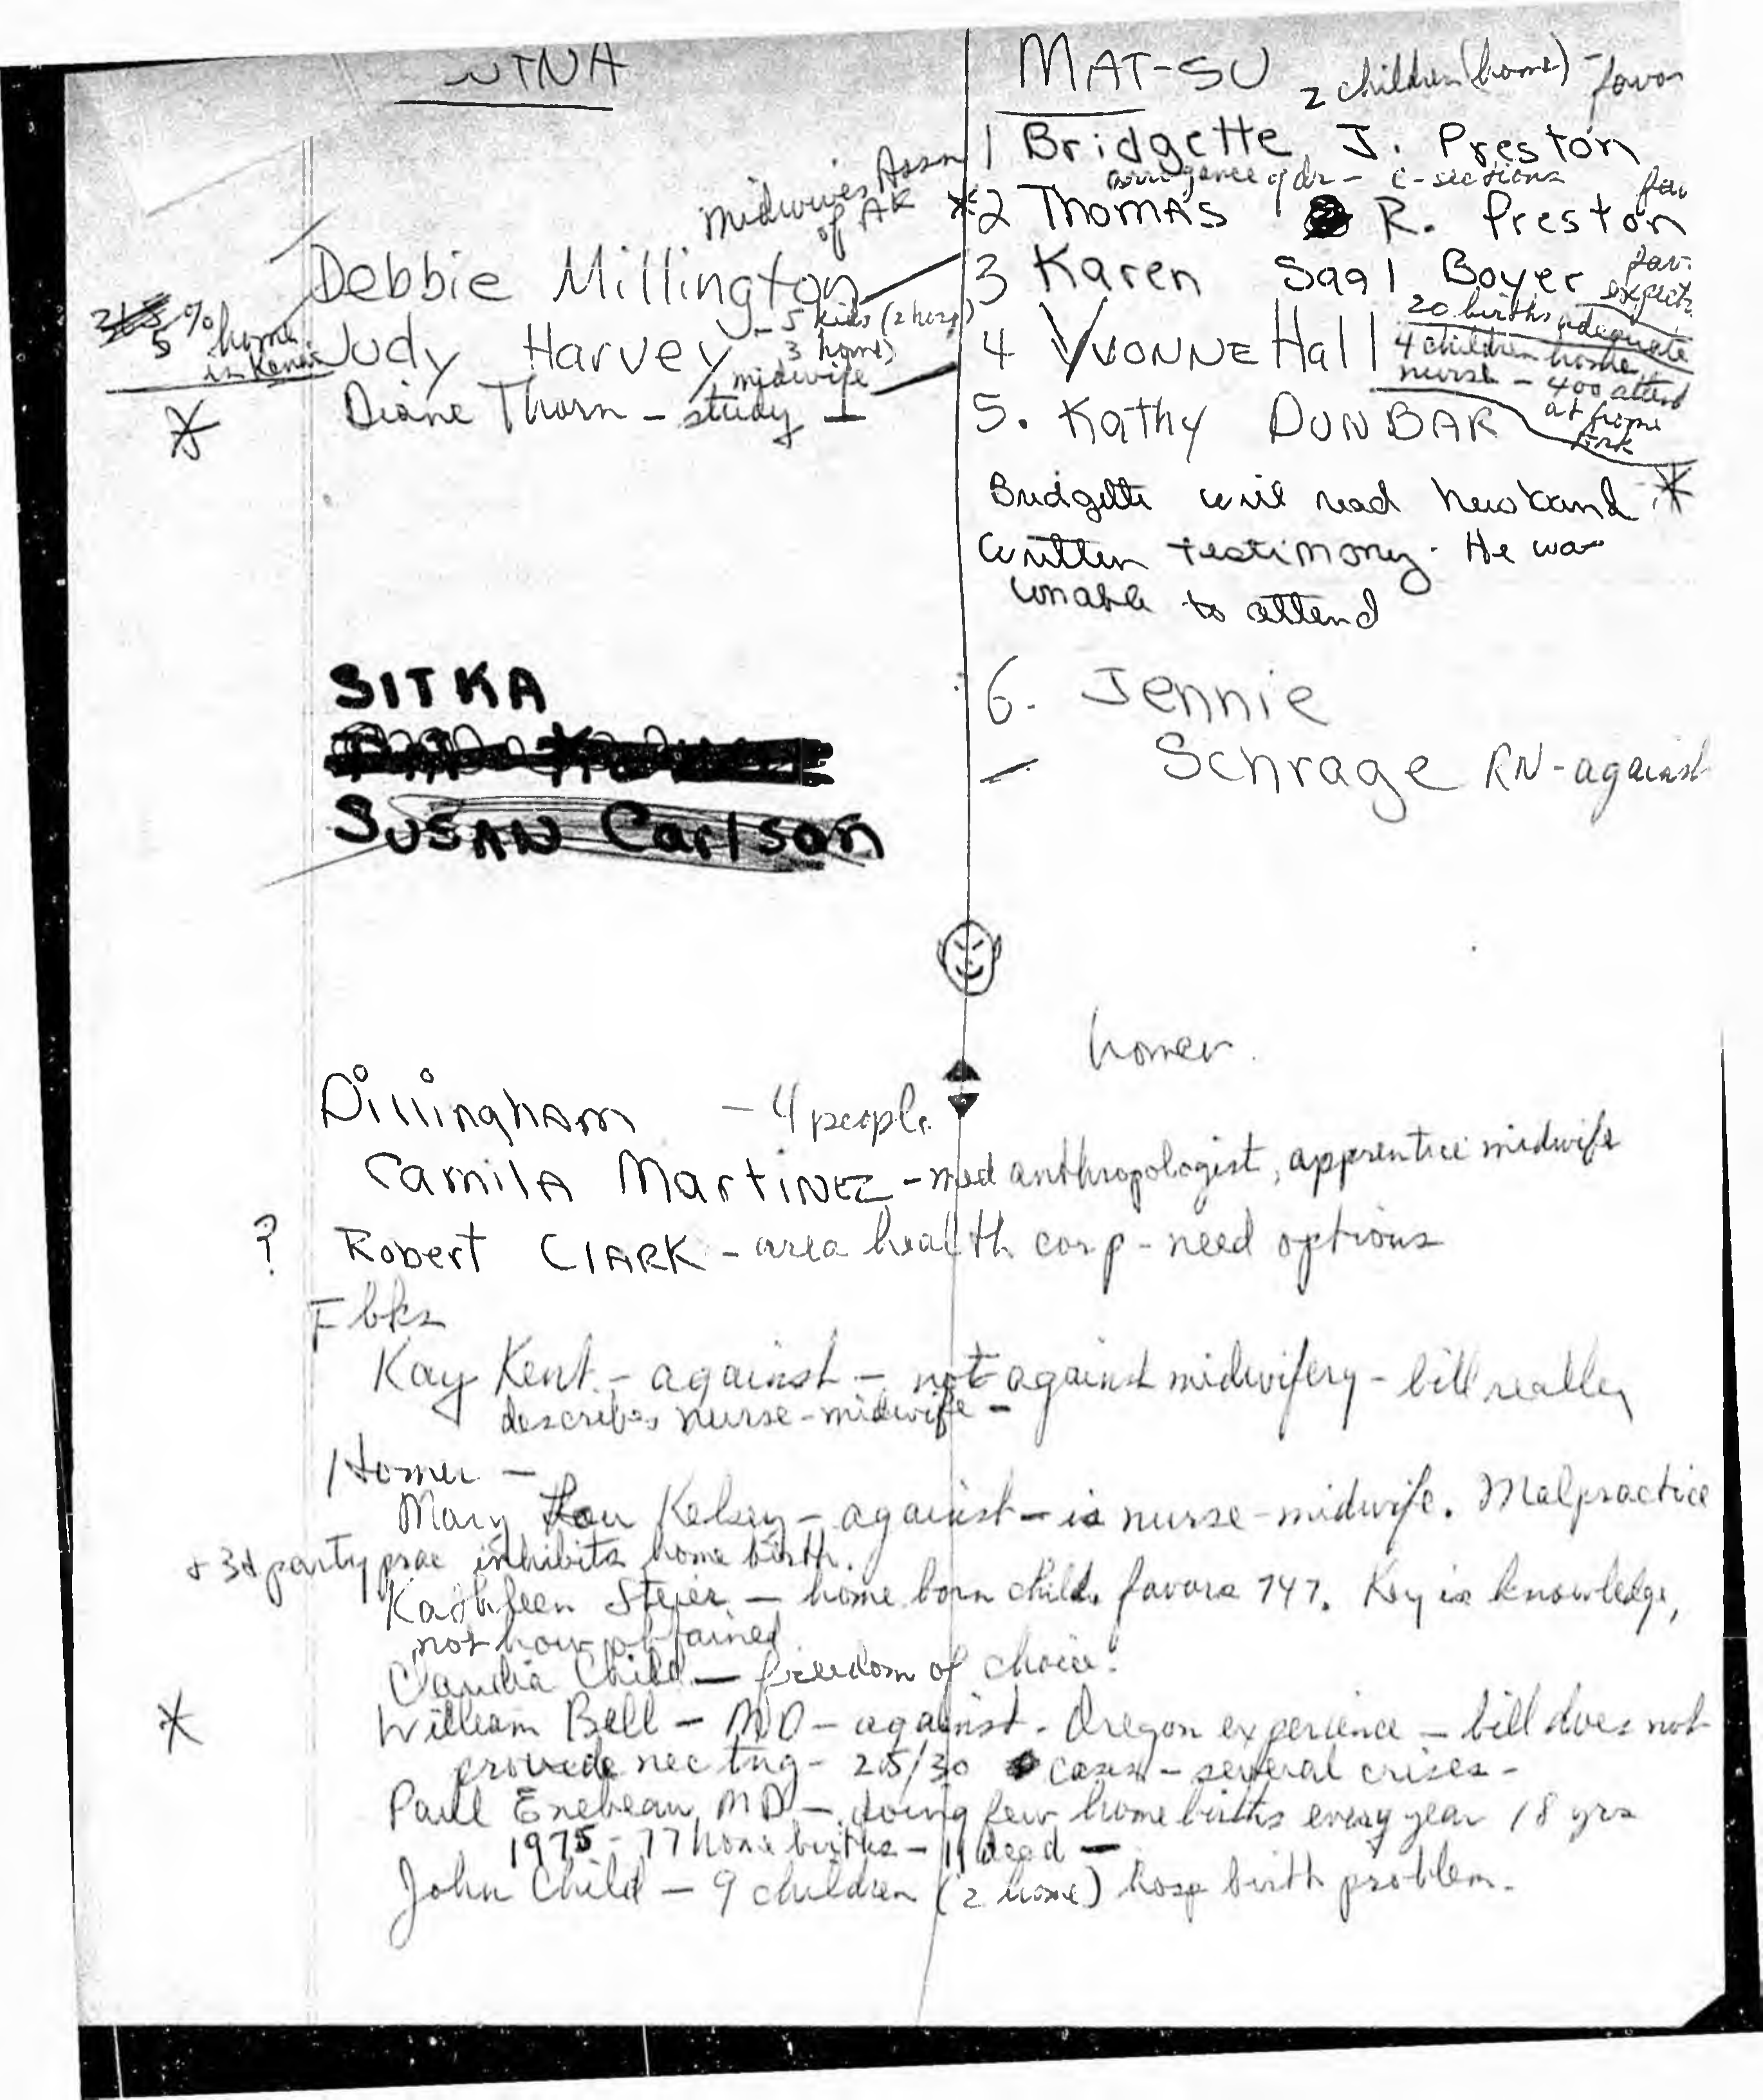 MAT-SU 2 children (home) - favor
midwives Assn of AK
Debbie Millington
5 % home in Kenai
Judy Harvey - 5 kids (2 hosp) 3 home)
midwife
Diane Thorn - study
1 Bridgette J. Preston
of dr - c-sections
*2 Thomas R. Preston
3 Karen Saal Boyer
20 births adequate
4 Yvonne Hall
4 children home,
nurse - 400 attend
5. Kathy DUNBAR
at home
*
Bridgette will read husband *
written testimony. He was
unable to attend
SITKA
SUSAN Carlson
6. Jennie
Schrage RN - against
homer
Dillingham - 4 people
Camila Martinez - med anthropologist, apprentice midwife
? Robert Clark - area health corp - need options
Fbks
Kay Kent - against - not against midwifery - bill really
describes nurse-midwife -
Homer -
Mary Lou Kelsey - against - is nurse-midwife. Malpractice
+ 3d party prac inhibits home birth.
Kathleen Steier - home born child. favors 747. Key is knowledge,
not how obtained
Claudia Child - freedom of choice.
* William Bell - MD - against - Oregon experience - bill does not
provide nec tng - 25/30 cases - several crises -
Paul Eneboe MD - doing few home births every year 18 yrs
1975 - 77 home births - 11 dead -
John Child - 9 children (2 home) hosp birth problem.